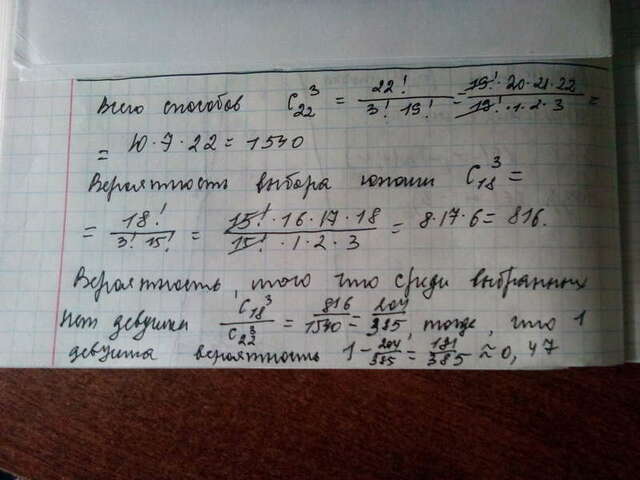 Всего способов C₂₂³ = 22!/3! 19! = 19!·20·21·22/19!·1·2·3 =
= 10·7·22 = 1540
Вероятность выбора юноши C₁₈³ =
= 18!/3! 15! = 15!·16·17·18/15!·1·2·3 = 8·17·6 = 816.
Вероятность, того что среди выбранных
нет девушки C₁₈³/C₂₂³ = 816/1540 = 204/385, тогда, что 1
девушка вероятность 1 - 204/385 = 181/385 ≈ 0,47